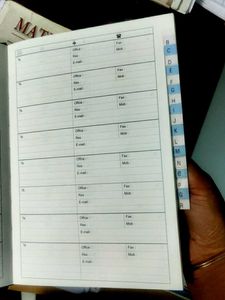 MAT
Office : Fax :
Res : Mob :
E-mail :
Office : Fax :
Res : Mob :
E-mail :
Office : Fax :
Res : Mob :
E-mail :
Office : Fax :
Res : Mob :
E-mail :
Office : Fax :
Res : Mob :
E-mail :
Office : Fax :
Res : Mob :
E-mail :
Office : Fax :
Res : Mob :
E-mail :
Office : Fax :
Res : Mob :
E-mail :
Office : Fax :
Res : Mob :
E-mail :
B
C
D
E
F
G
H
I
J
K
L
M
N
O
P
Q
R